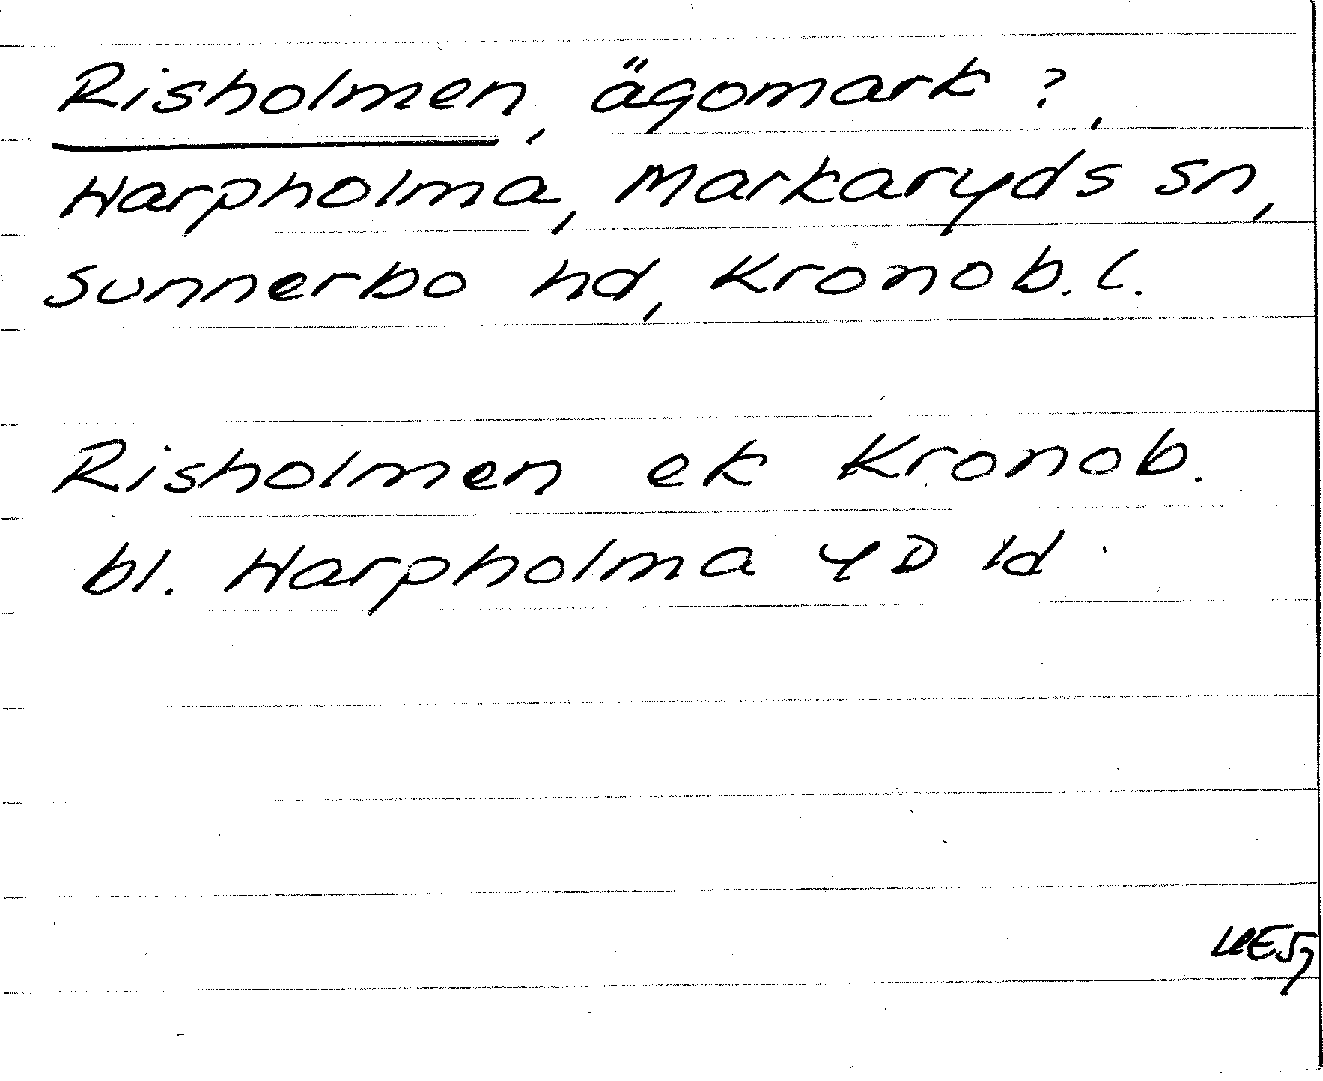 Risholmen, ägomark ?,
Harpholma, Markaryds sn,
Sunnerbo hd, Kronob. l.
Risholmen ek Kronob.
bl. Harpholma 4D 1d